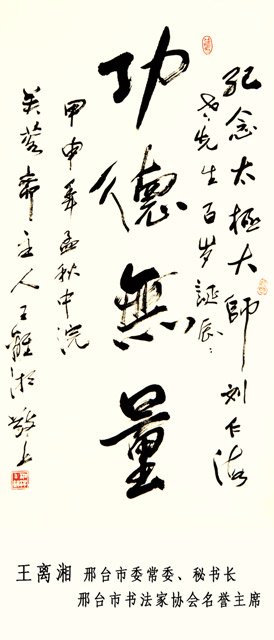 纪念太極大師刘仁海
老先生百岁誕辰:
功德無量
甲申年孟秋中浣
斋主人王離湘敬上
王离湘 邢台市委常委、秘书长
邢台市书法家协会名誉主席